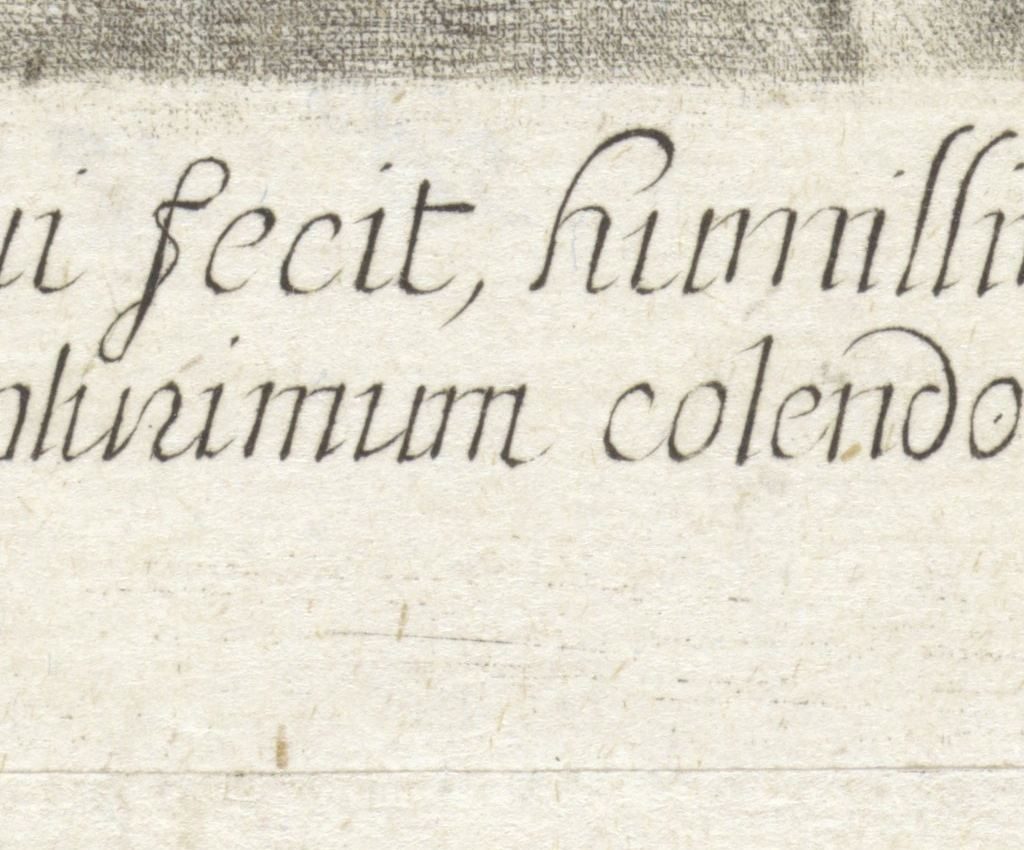 ui fecit, humilli
plurimum colendo